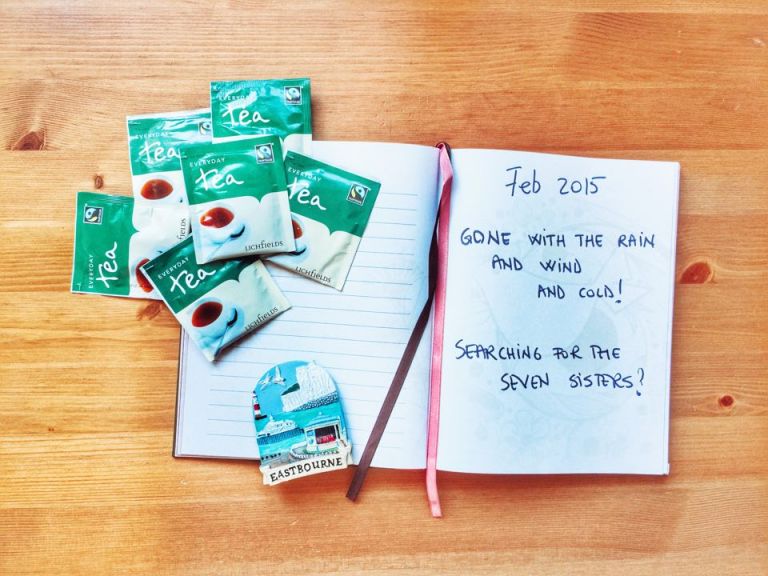 EVERYDAY
tea
EVERYDAY
tea
EVERYDAY
tea
LICHFIELDS
tea
LICHFIELDS
EVERYDAY
tea
EVERYDAY
tea
LICHFIELDS
EASTBOURNE
Feb 2015
GONE WITH THE RAIN
AND WIND
AND COLD!
SEARCHING FOR THE
SEVEN SISTERS?